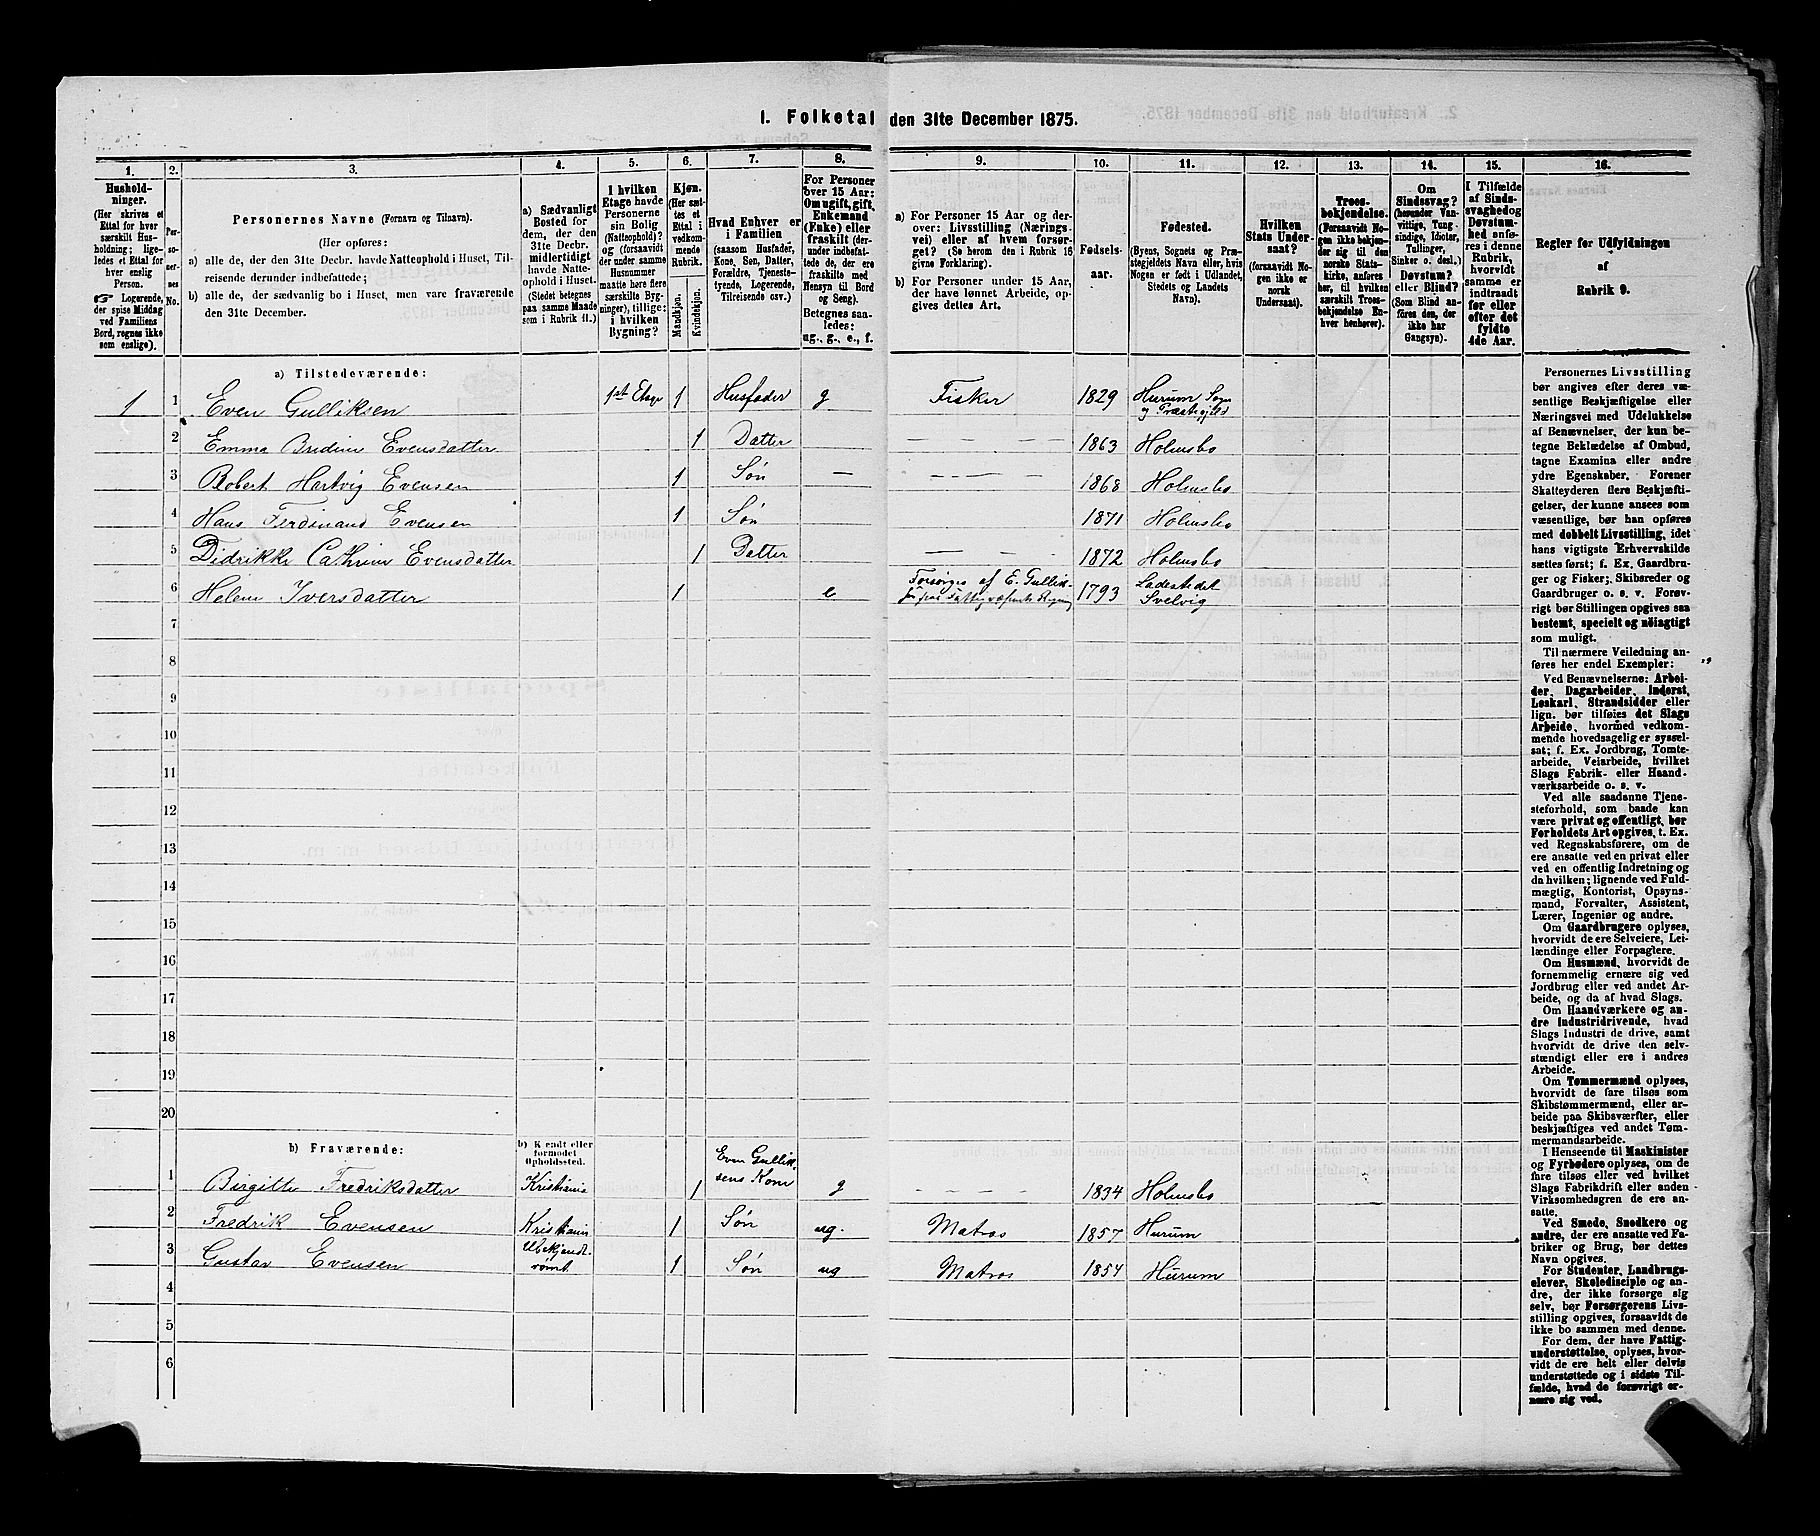 1. Folketal den 31te December 1875.
1. 2. 3. 4. 5. 6. 7. 8. 9. 10. 11. 12. 13. 14. 15. 16.
Hushold-
ninger.
(Her skrives et
Ettal for hver
særskilt Hus-
holdning; lige-
ledes et Ettal for
hver enslig
Person.
☞ Logerende,
der spise Middag
ved Familiens
Bord, regnes ikke
som enslige).
Per-
so-
ner-
nes
No.
Personernes Navne (Fornavn og Tilnavn).
(Her opføres:
a) alle de, der den 31te Decbr. havde Natteophold i Huset, Til-
reisende derunder indbefattede;
b) alle de, der sædvanlig bo i Huset, men vare fraværende
den 31te December.
a) Sædvanligt
Bosted for
dem, der den
31te Decbr.
midlertidigt
havde Natte-
ophold i Huset.
(Stedet betegnes
paa samme Maade
som i Rubrik 11.)
I hvilken
Etage havde
Personerne
sin Bolig
(Natteophold)?
og (forsaavidt
der under samme
Husnummer
maatte høre flere
særskilte Byg-
ninger), tillige:
i hvilken
Bygning?
Kjøn.
(Her sæt-
tes et
Ettal i
vedkom-
mende
Rubrik.
Mandkjøn.
Kvindekjøn.
Hvad Enhver er
i Familien
(saasom Husfader,
Kone, Søn, Datter,
Forældre, Tjeneste-
tyende, Logerende,
Tilreisende osv.)
For Personer
over 15 Aar:
Om ugift, gift,
Enkemand
(Enke) eller
fraskilt (der-
under indbefat-
tede de, der ere
fraskilte med
Hensyn til Bord
og Seng).
Betegnes saa-
ledes:
ug., g., e., f.
a) For Personer 15 Aar og der-
over: Livsstilling (Nærings-
vei) eller af hvem forsør-
get? (Se herom den i Rubrik 16
givne Forklaring).
b) For Personer under 15 Aar,
der have lønnet Arbeide, op-
gives dettes Art.
Fødsels-
aar.
Fødested.
(Byens, Sognets og Præ-
stegjeldets Navn eller, hvis
Nogen er født i Udlandet,
Stedets og Landets
Navn).
Hvilken
Stats Under-
saat?
(forsaavidt No-
gen ikke er
norsk
Undersaat).
Troes-
bekjendelse.
(Forsaavidt No-
gen ikke bekjen-
der sig til den
norske Stats-
kirke, anføres
her, til hvilken
særskilt Troes-
bekjendelse En-
hver henhører).
Om
Sindssvag?
(herunder Van-
vittige, Tung-
sindige, Idioter,
Tullinger,
Sinker o. desl.)
Døvstum?
eller Blind?
(Som Blind an-
føres den, der
ikke har
Gangsyn).
I Tilfælde
af Sinds-
svaghed og
Døvstum-
hed anfø-
res i denne
Rubrik,
hvorvidt
samme er
indtraadt
før eller
efter det
fyldte
4de Aar.
Regler for Udfyldningen
af
Rubrik 9.
a) Tilstedeværende:
1 1 Even Gulliksen 1st Etage 1 Husfader g Fisker 1829 Hurum Sogn
og Præstegjeld
2 Emma Bredine Evensdatter 1 Datter — — — 1863 Holmsbo
3 Robert Hartvig Evensen 1 Søn — — — — 1868 Holmsbo
4 Hans Ferdinand Evensen 1 Søn 1871 Holmsbo
5 Didrikke Cathrine Evensdatter 1 Datter — — 1872 Holmsbo
6 Helene Iversdatter 1 e Forsørges af E. Gullik- 1793 Ladestedet
Svelvig
7
8
9
10
11
12
13
14
15
16
17
18
19
20
b) Fraværende:
b) Kendt eller
formodet
Opholdssted.
1 Birgitte Fredriksdatter Kristiania 1 Even Gullik-
sens Kone g — — — 1834 Holmsbo
2 Fredrik Evensen Kristiania 1 Søn ug. Matros 1857 Hurum
3 Gustav Evensen Ubekjendt 1 Søn ug Matros 1854 Hurum
4
5
6
Personernes Livsstilling
bør angives efter deres væ-
sentlige Beskjæftigelse eller
Næringsvei med Udelukkelse
af Benævnelser, der kun be-
tegne Beklædelse af Ombud,
tagne Examina eller andre
ydre Egenskaber. Forener
Skatteyderen flere Beskjæfti-
gelser, der kunne ansees som
væsentlige, bør han opføres
med dobbelt Livsstilling, idet
hans vigtigste Erhvervskilde
sættes først; f. Ex. Gaardbru-
ger og Fisker; Skibsreder og
Gaardbruger o. s. v. Forøv-
rigt bør Stillingen opgives saa
bestemt, specielt og nøiagtigt
som muligt.
Til nærmere Veiledning an-
føres her endel Exempler:
Ved Benævnelserne: Arbei-
der, Dagarbeider, Inderst,
Løskarl, Strandsidder eller
lign. bør tilføies det Slags
Arbeide, hvormed vedkom-
mende hovedsagelig er syssel-
sat; f. Ex. Jordbrug, Tomte-
arbeide, Veiarbeide, hvilket
Slags Fabrik- eller Haand-
værksarbeide o. s. v.
Ved alle saadanne Tjene-
steforhold, som baade kan
være privat og offentligt, bør
Forholdets Art opgives, t. Ex.
ved Regnskabsførere, om de
ere ansatte ved en privat eller
ved en offentlig Indretning og
da hvilken; lignende ved Fuld-
mægtig, Kontorist, Opsyns-
mand, Forvalter, Assistent,
Lærer, Ingeniør og andre.
Om Gaardbrugere oplyses,
hvorvidt de ere Selveiere, Lei-
lændinge eller Forpagtere.
Om Husmænd, hvorvidt de
fornemmelig ernære sig ved
Jordbrug eller ved andet Ar-
beide, og da af hvad Slags.
Om Haandværkere og an-
dre Industridrivende, hvad
Slags Industri de drive, samt
hvorvidt de drive den selv-
stændigt eller ere i andres
Arbeide.
Om Tømmermænd oplyses,
hvorvidt de fare tilsøs som
Skibstømmermænd, eller ar-
beide paa Skibsværfter, eller
beskjæftiges ved andet Tøm-
mermandsarbeide.
I Henseende til Maskinister
og Fyrbødere oplyses, om de
fare tilsøs eller ved hvilket
Slags Fabrikdrift eller anden
Virksomhedsgren de ere an-
satte.
Ved Smede, Snedkere og
andre, der ere ansatte ved Fa-
briker og Brug, bør dettes
Navn opgives.
For Studenter, Landbrugs-
elever, Skoledisciple og an-
dre, der ikke forsørge sig
selv, bør Forsørgerens Livs-
stilling opgives, forsaavidt de
ikke bo sammen med denne.
For dem, der have Fattig-
understøttelse, oplyses, hvor-
vidt de ere helt eller delvis
understøttede og i sidste Til-
fælde, hvad de forøvrigt er-
nære sig ved.